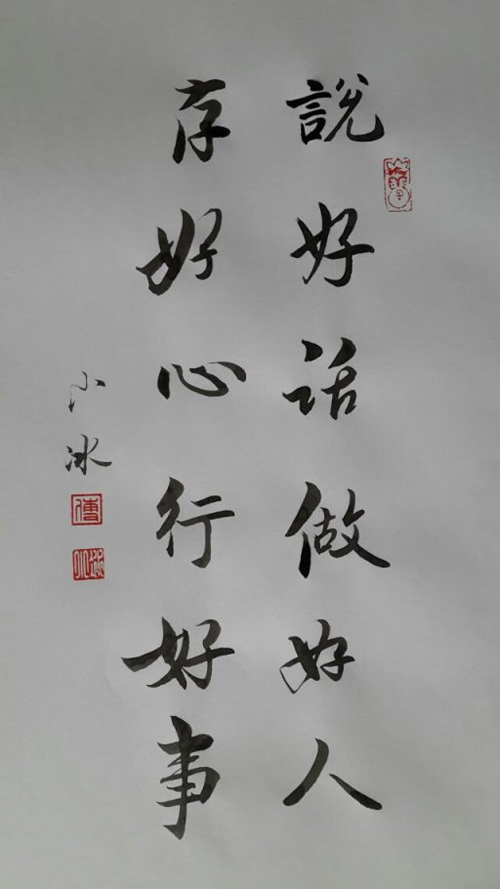 說好話做好人
存好心行好事
小冰